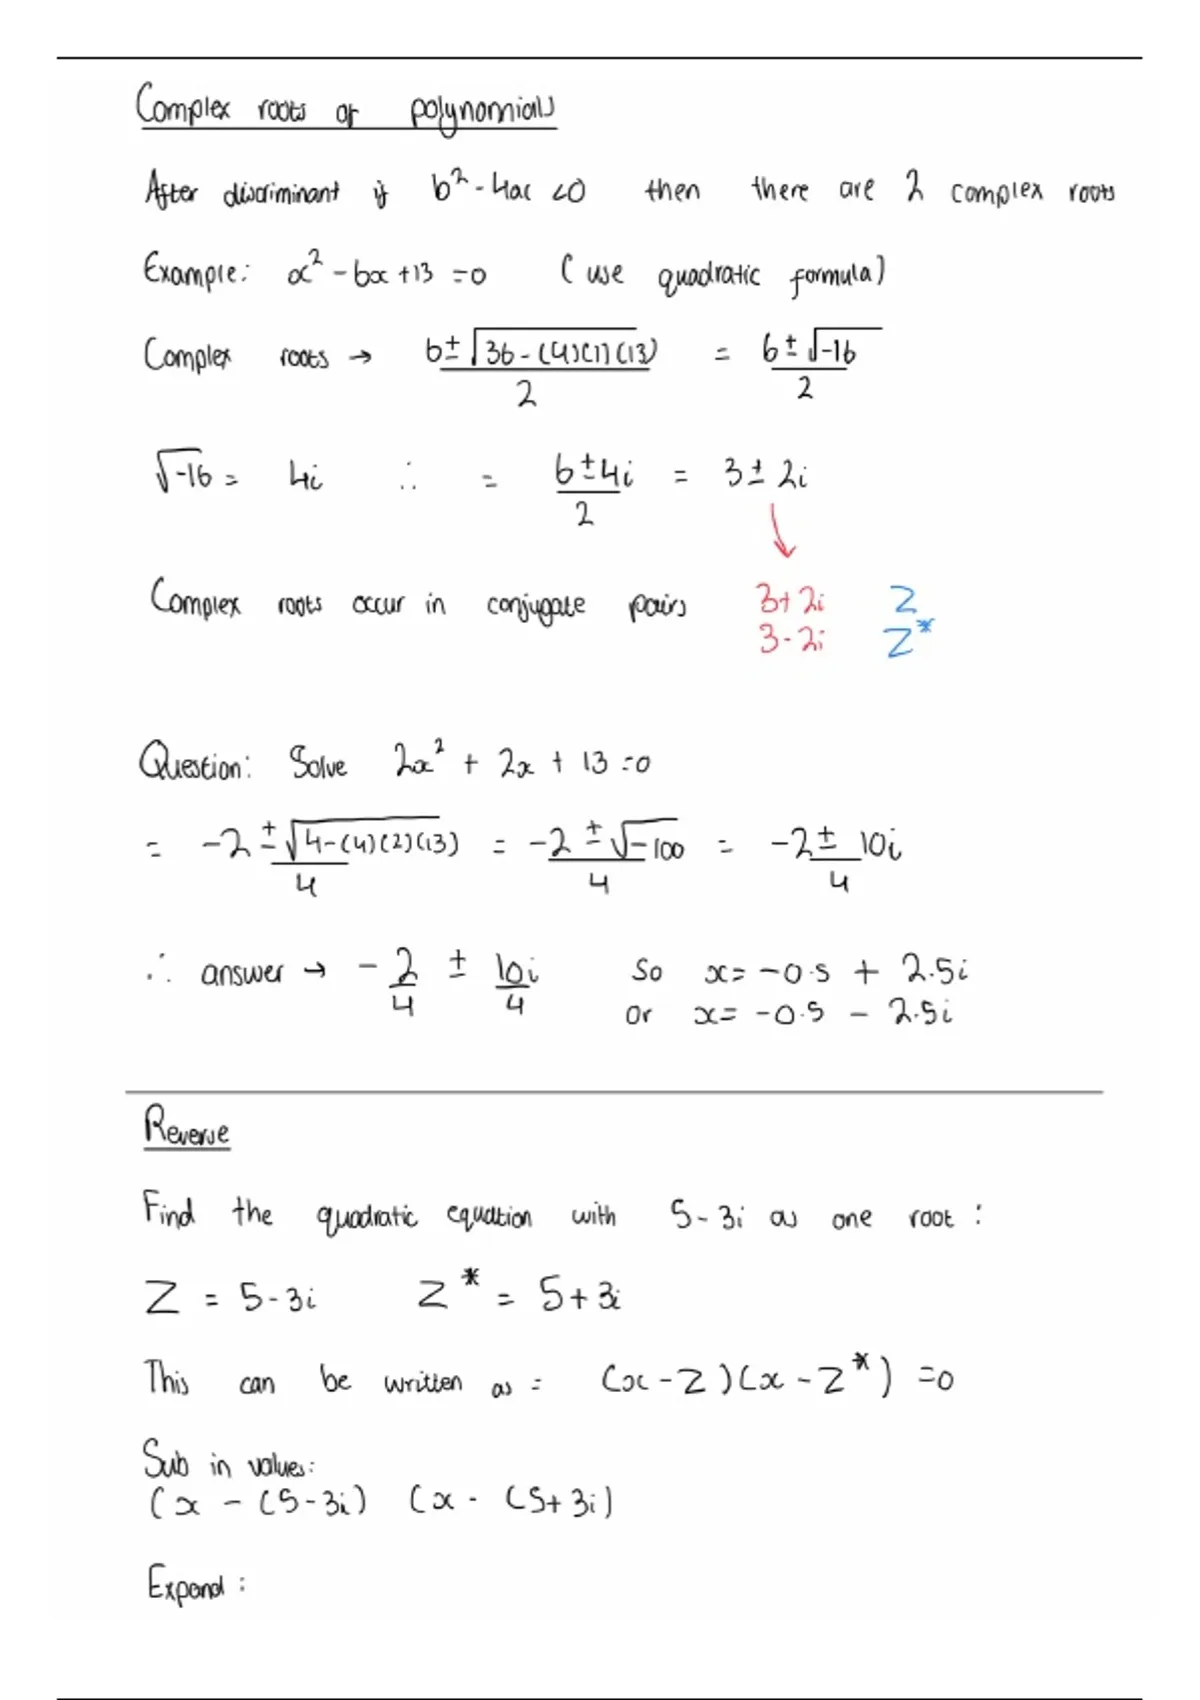 Complex roots of polynomials
After discriminant if b² - 4ac <0 then there are 2 complex roots
Example: x² - 6x + 13 = 0 (use quadratic formula)
Complex roots → 6 ± √36 - (4)(1)(13) / 2 = 6 ± √-16 / 2
√-16 = 4i ∴ = 6 ± 4i / 2 = 3 ± 2i
Complex roots occur in conjugate pairs 3+2i Z
3-2i Z*
Question: Solve 2x² + 2x + 13 = 0
= -2 ± √4-(4)(2)(13) / 4 = -2 ± √-100 / 4 = -2 ± 10i / 4
∴ answer → - 2/4 ± 10i/4 So x = -0.5 + 2.5i
or x = -0.5 - 2.5i
Reverse
Find the quadratic equation with 5-3i as one root:
Z = 5-3i Z* = 5+3i
This can be written as = (x-Z)(x-Z*) = 0
Sub in values:
(x - (5-3i) (x - (5+3i)
Expand: